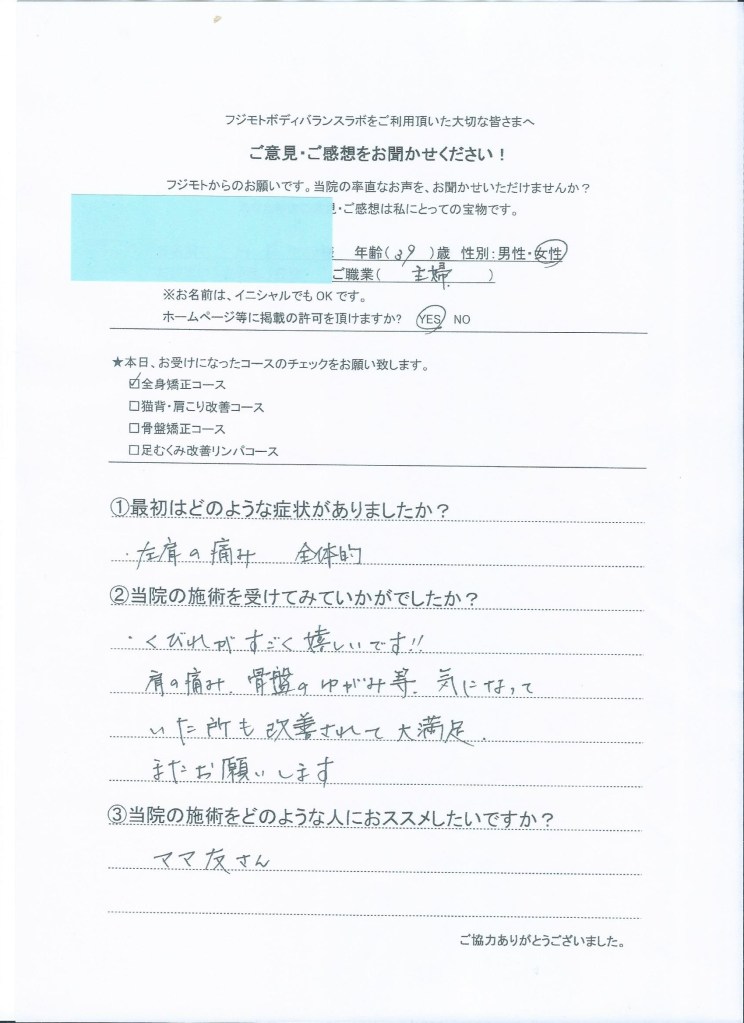 フジモトボディバランスラボをご利用頂いた大切な皆さまへ
ご意見・ご感想をお聞かせください！
フジモトからのお願いです。当院の率直なお声を、お聞かせいただけませんか？
・ご感想は私にとっての宝物です。
年齢（39）歳 性別：男性・女性
ご職業（ 主婦 ）
※お名前は、イニシャルでもOKです。
ホームページ等に掲載の許可を頂けますか？ YES NO
★本日、お受けになったコースのチェックをお願い致します。
☑全身矯正コース
□猫背・肩こり改善コース
□骨盤矯正コース
□足むくみ改善リンパコース
①最初はどのような症状がありましたか？
・左肩の痛み 全体的
②当院の施術を受けてみていかがでしたか？
・くびれがすごく嬉しいです!!
肩の痛み、骨盤のゆがみ等、気になって
いた所も改善されて大満足。
またお願いします
③当院の施術をどのような人におススメしたいですか？
ママ友さん
ご協力ありがとうございました。